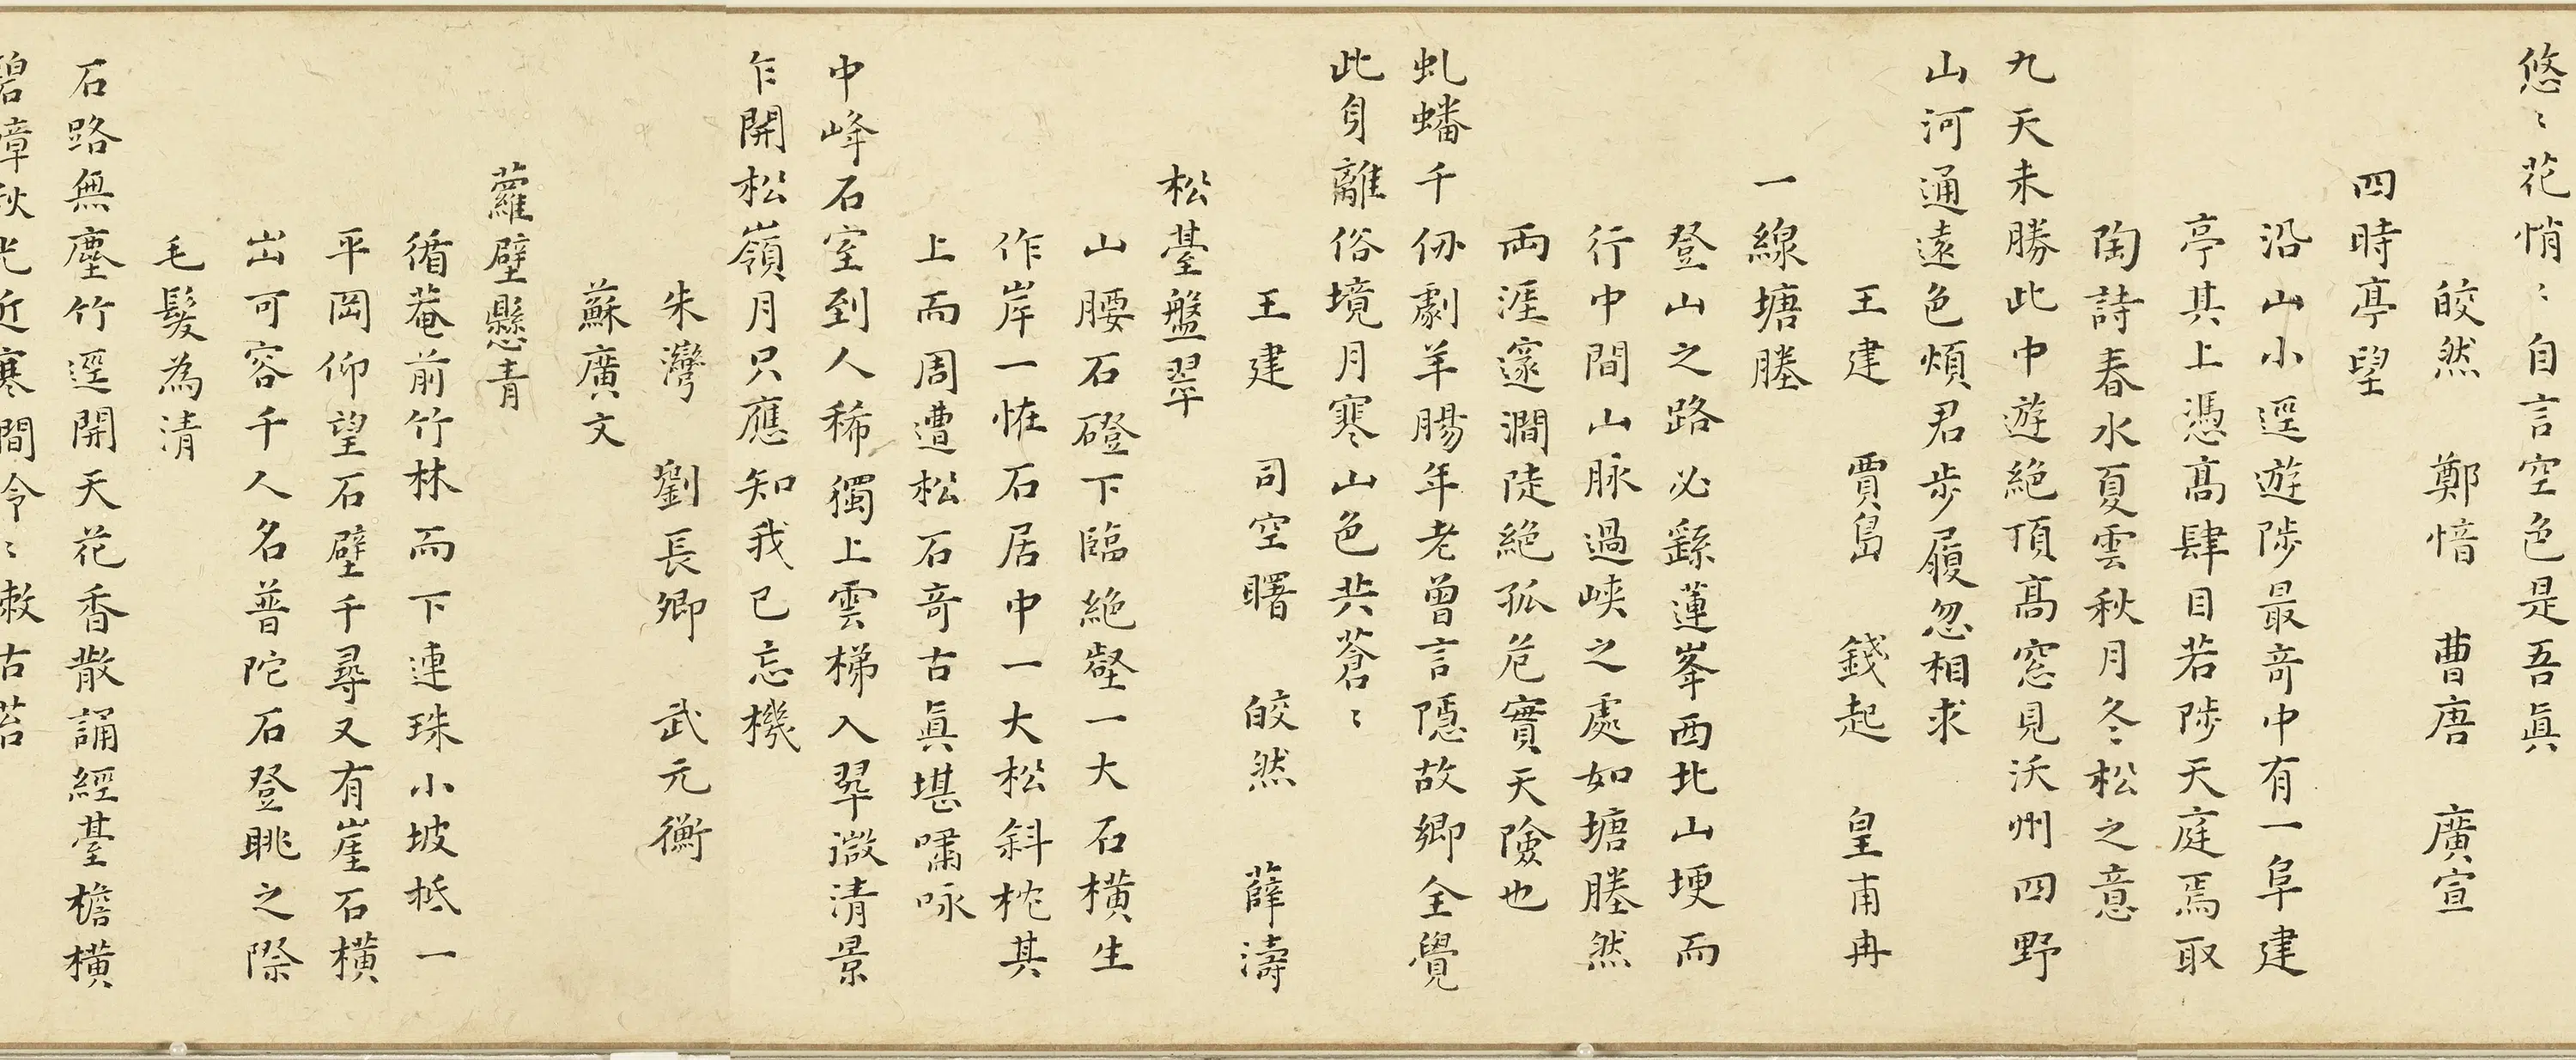 悠〻花悄〻自言空色是吾眞
皎然　鄭愔　曹唐　廣宣
四時亭望
沿山小逕遊陟最竒中有一阜建
亭其上憑髙肆目若陟天庭焉取
陶詩春水夏雲秋月冬松之意
九天未勝此中遊絶頂髙窓見沃州四野
山河通遠色煩君步履忽相求
王建　賈島　錢起　皇甫冉
一線塘塍
登山之路必繇蓮峯西北山埂而
行中間山脉過峽之處如塘塍然
兩涯邃澗陡絶孤危實天險也
虬蟠千仞劇羊腸年老曾言隱故鄉全覺
此身離俗境月寒山色共蒼〻
王建　司空曙　皎然　薛濤
松臺盤翠
山腰石磴下臨絶壑一大石橫生
作岸一恠石居中一大松斜桅其
上而周遭松石竒古眞堪嘯咏
中峰石室到人稀獨上雲梯入翠微清景
乍開松嶺月只應知我已忘機
朱灣　劉長卿　武元衡
蘇廣文
蘿壁懸青
循菴前竹林而下連珠小坡柢一
平岡仰望石壁千尋又有崖石橫
出可容千人名普陀石登眺之際
毛髮為清
石路無塵竹逕開天花香散誦經臺檐橫
碧嶂秋光近寒澗泠〻漱古苔